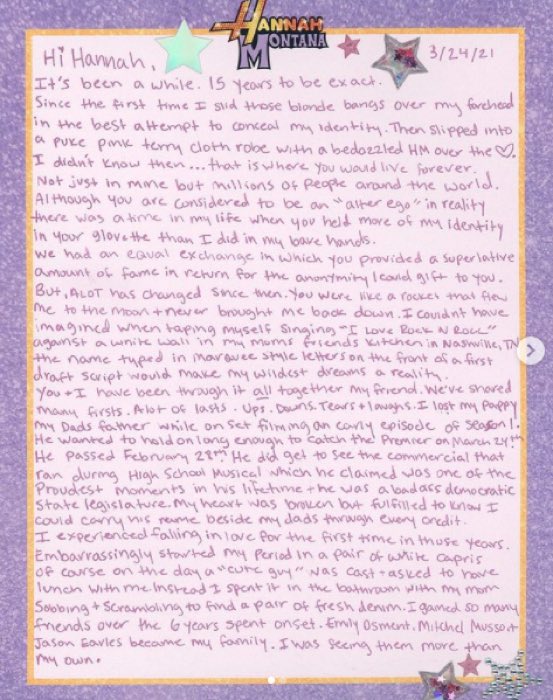 HANNAH
MONTANA
Hi Hannah,
3/24/21
It's been a while. 15 years to be exact.
Since the first time I slid those blonde bangs over my forehead
in the best attempt to conceal my identity. Then slipped into
a puke pink terry cloth robe with a bedazzled HM over the ♡.
I didn't know then... that is where you would live forever.
Not just in mine but millions of people around the world.
Although you are considered to be an "alter ego" in reality
there was a time in my life when you held more of my identity
in your glovette than I did in my bare hands.
We had an equal exchange in which you provided a superlative
amount of fame in return for the anonymity I could gift to you.
But, ALOT has changed since then. You were like a rocket that flew
me to the moon + never brought me back down. I couldnt have
imagined when taping myself singing "I Love Rock N Roll"
against a white wall in my moms friends kitchen in Nashville, TN
the name typed in marquee style letters on the front of a first
draft script would make my wildest dreams a reality.
You + I have been through it all together my friend. We've shared
many firsts. Alot of lasts. Ups. Downs. Tears + laughs. I lost my Pappy
my Dads father while on set filming an early episode of season 1.
He wanted to hold on long enough to catch the Premier on March 24th
He passed February 28th He did get to see the commercial that
ran during High School Musical which he claimed was one of the
Proudest moments in his lifetime + he was a badass democratic
State legislature. My heart was broken but fulfilled to know I
could carry his name beside my dads through every credit.
I experienced falling in love for the first time in those years.
Embarrassingly started my period in a pair of white capris
of course on the day a "cute guy" was cast + asked to have
lunch with me. Instead I spent it in the bathroom with my mom
Sobbing + Scrambling to find a pair of fresh denim. I gained so many
friends over the 6 years spent on set. Emily Osment. Mitchel Musso. +
Jason Earles became my family. I was seeing them more than
my own.